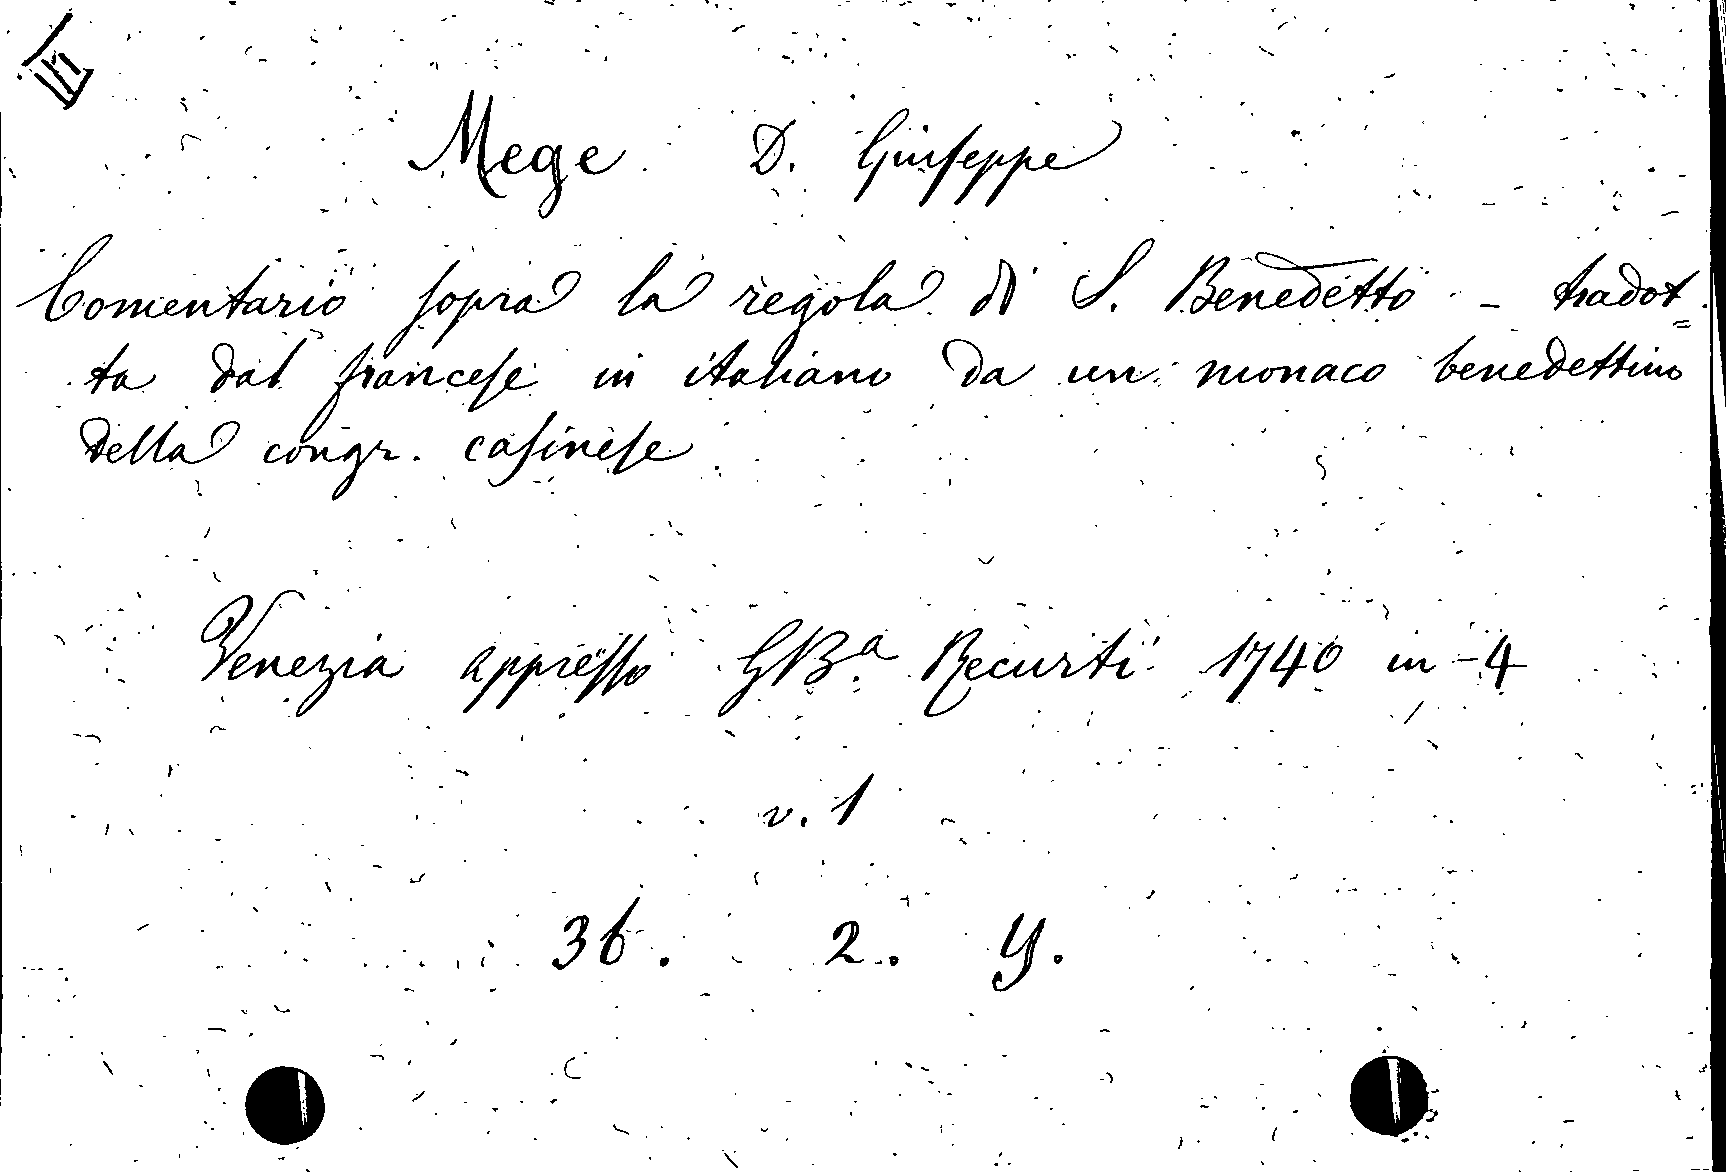 III
Mege D. Giuseppe
Comentario sopra la regola di S. Benedetto - tradot=
ta dal francese in italiano da un monaco benedettino
della congr. casinese
Venezia appresso GBa. Recurti 1740 in-4
v. 1
36. 2. Y.